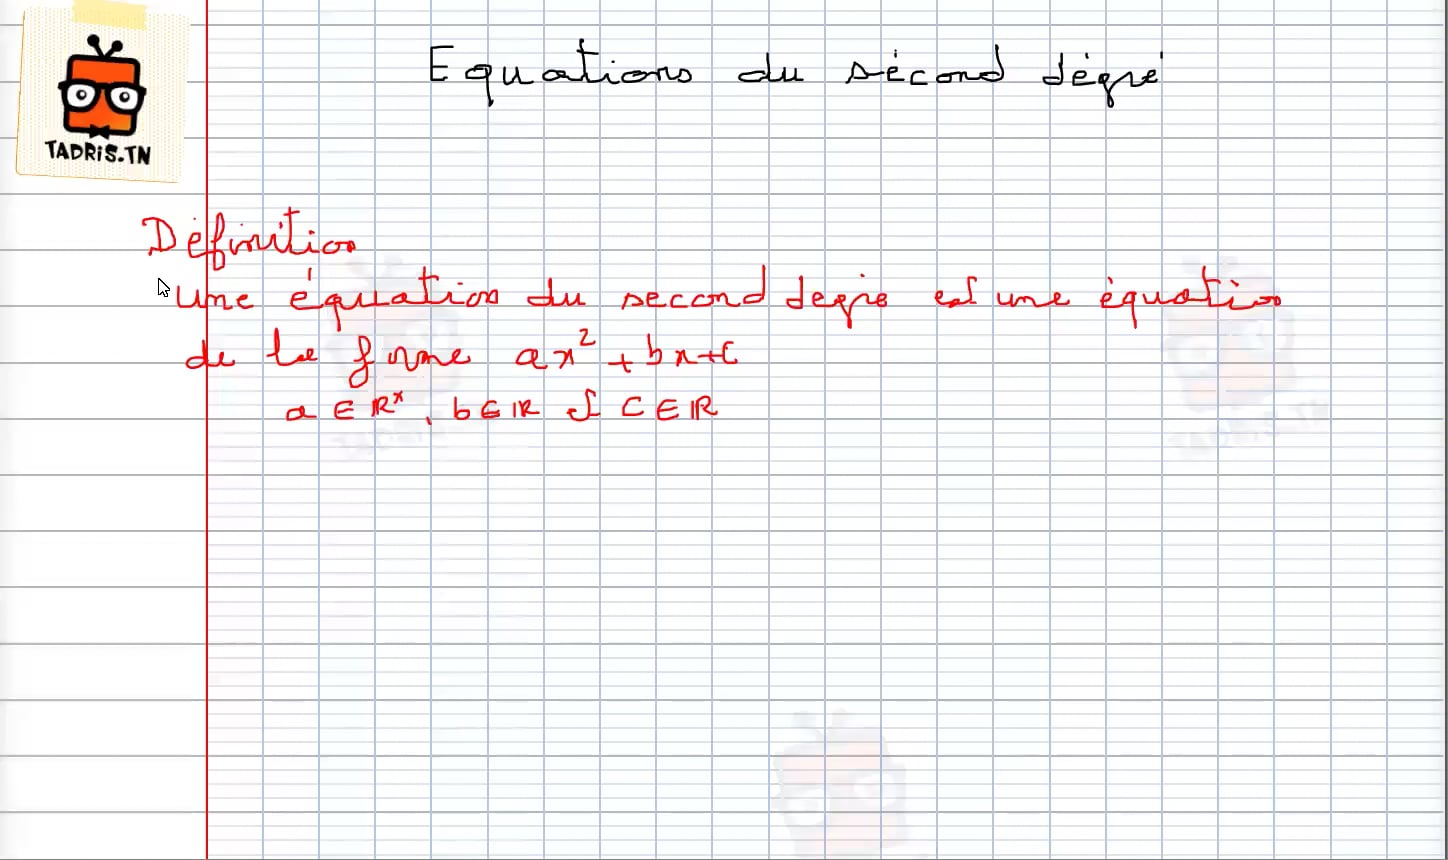 TADRiS.TN
Equations du sécond dégré
Définition
une équation du second degré est une équation
de la forme ax² + bx + c
a ∈ ℝ*, b ∈ ℝ et c ∈ ℝ
TADRiS.TN
TADRiS.TN